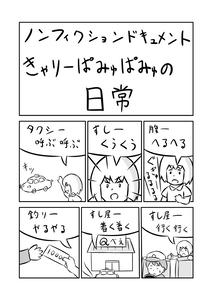 ノンフィクションドキュメント
きゃりーぱみゅぱみゅの
日常
腹ー
へるへる
すしー
くうくう
タクシー
呼ぶ呼ぶ
キッ
すし屋ー
行く行く
すし屋ー
着く着く
釣りー
やるやる